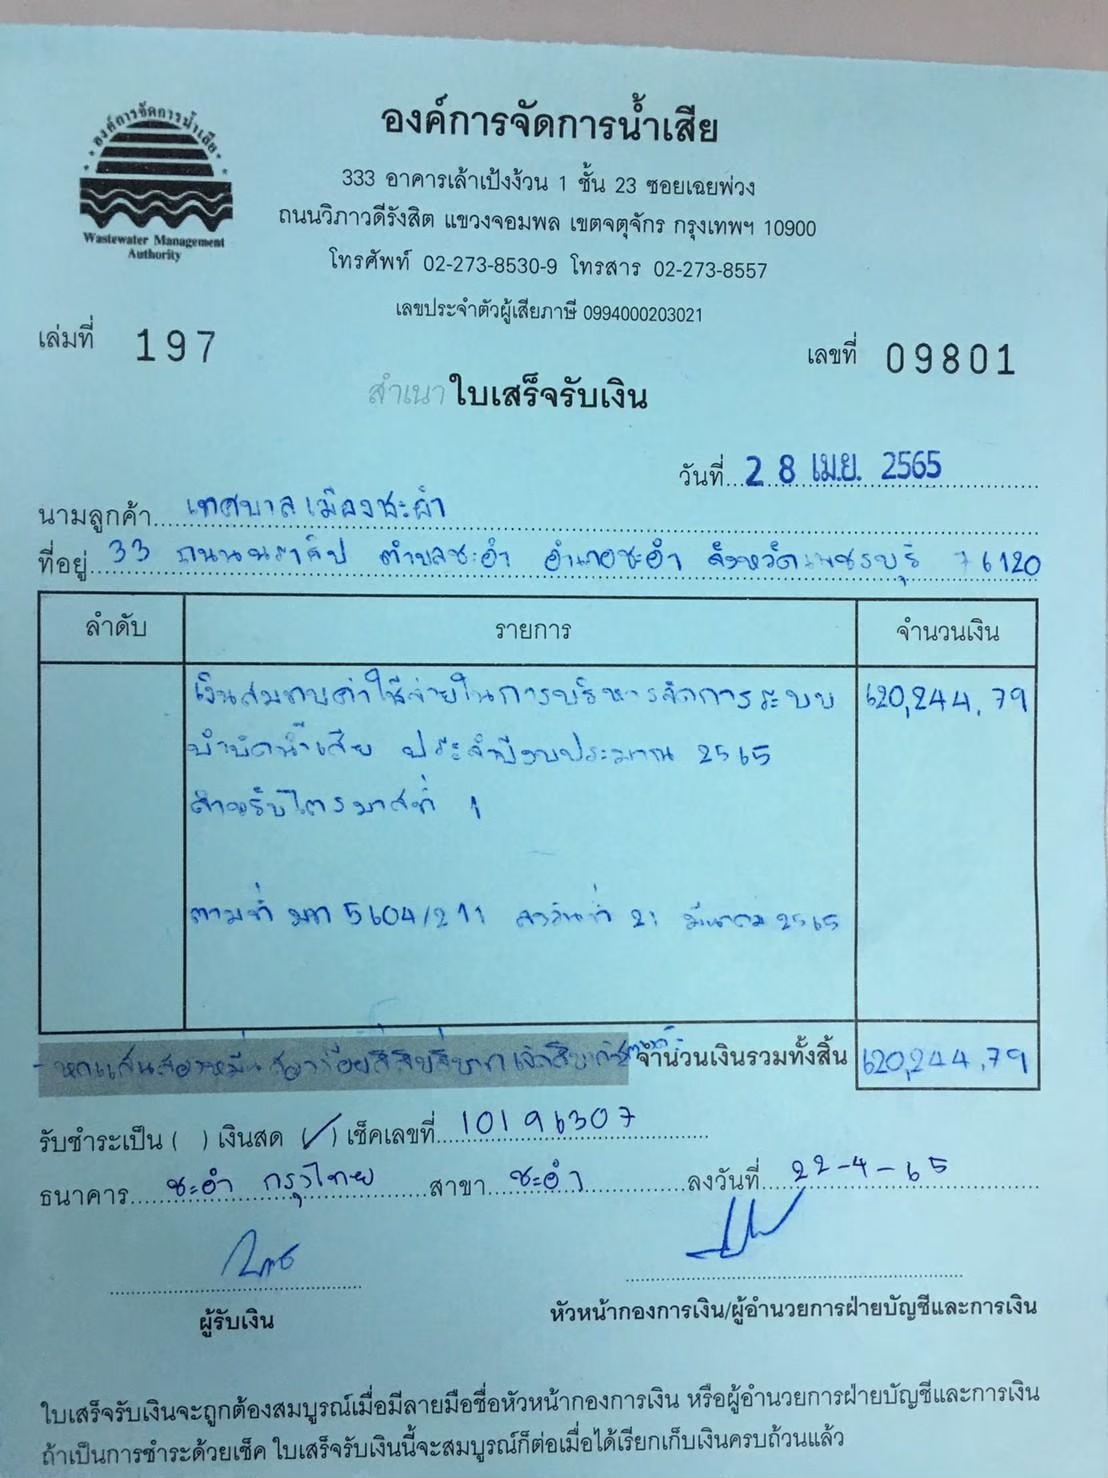 องค์การจัดการน้ำเสีย
Wastewater Management
Authority
องค์การจัดการน้ำเสีย
333 อาคารเล้าเป้งง้วน 1 ชั้น 23 ซอยเฉยพ่วง
ถนนวิภาวดีรังสิต แขวงจอมพล เขตจตุจักร กรุงเทพฯ 10900
โทรศัพท์ 02-273-8530-9 โทรสาร 02-273-8557
เลขประจำตัวผู้เสียภาษี 0994000203021
เล่มที่ 197
เลขที่ 09801
สำเนาใบเสร็จรับเงิน
วันที่ 28 เม.ย. 2565
นามลูกค้า เทศบาลเมืองชะอำ
ที่อยู่ 33 ถนนนราธิป ตำบลชะอำ อำเภอชะอำ จังหวัดเพชรบุรี 76120
ลำดับ รายการ จำนวนเงิน
เงินสมทบค่าใช้จ่ายในการบริหารจัดการระบบ 620,244.79
บำบัดน้ำเสีย ประจำปีงบประมาณ 2565
สำหรับไตรมาสที่ 1
ตามที่ มท 5604/211 ลงวันที่ 21 มีนาคม 2565
- หกแสนสองหมื่นสองร้อยสี่สิบสี่บาทเจ็ดสิบเก้าสตางค์ จำนวนเงินรวมทั้งสิ้น 620,244.79
รับชำระเป็น ( ) เงินสด (✓) เช็คเลขที่ 10196307
ธนาคาร ชะอำ กรุงไทย สาขา ชะอำ ลงวันที่ 22-4-65
ผู้รับเงิน หัวหน้ากองการเงิน/ผู้อำนวยการฝ่ายบัญชีและการเงิน
ใบเสร็จรับเงินจะถูกต้องสมบูรณ์เมื่อมีลายมือชื่อหัวหน้ากองการเงิน หรือผู้อำนวยการฝ่ายบัญชีและการเงิน
ถ้าเป็นการชำระด้วยเช็ค ใบเสร็จรับเงินนี้จะสมบูรณ์ก็ต่อเมื่อได้เรียกเก็บเงินครบถ้วนแล้ว